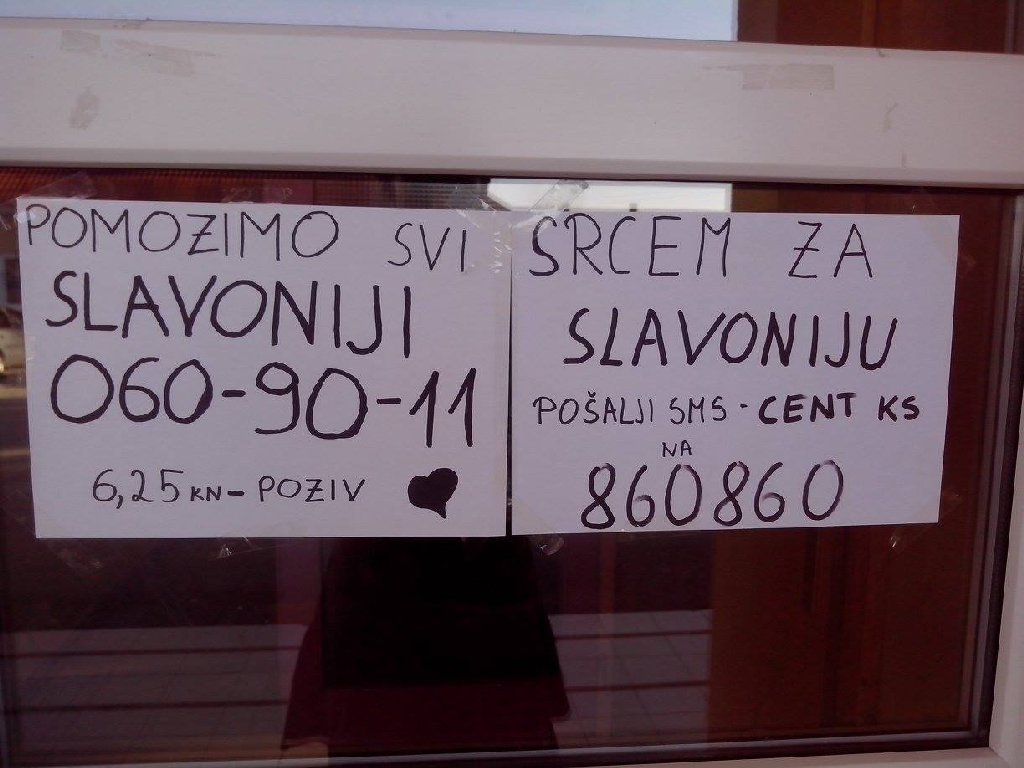 POMOZIMO SVI
SLAVONIJI
060-90-11
6,25 KN- POZIV
SRCEM ZA
SLAVONIJU
POŠALJI SMS - CENT KS
NA
860860